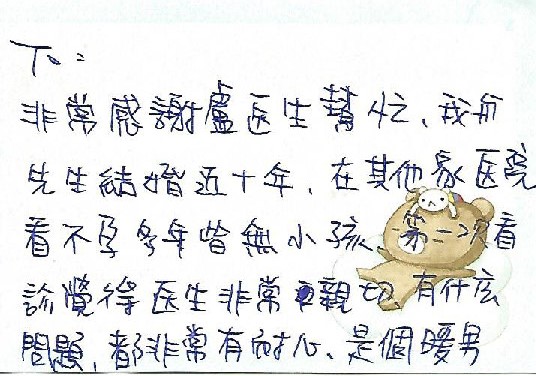 下:
非常感謝盧医生幫忙、我和
先生結婚近十年、在其他家医院
看不孕多年皆無小孩、第一次看
診覺得医生非常親切、有什麼
問題、都非常有耐心、是個暖男